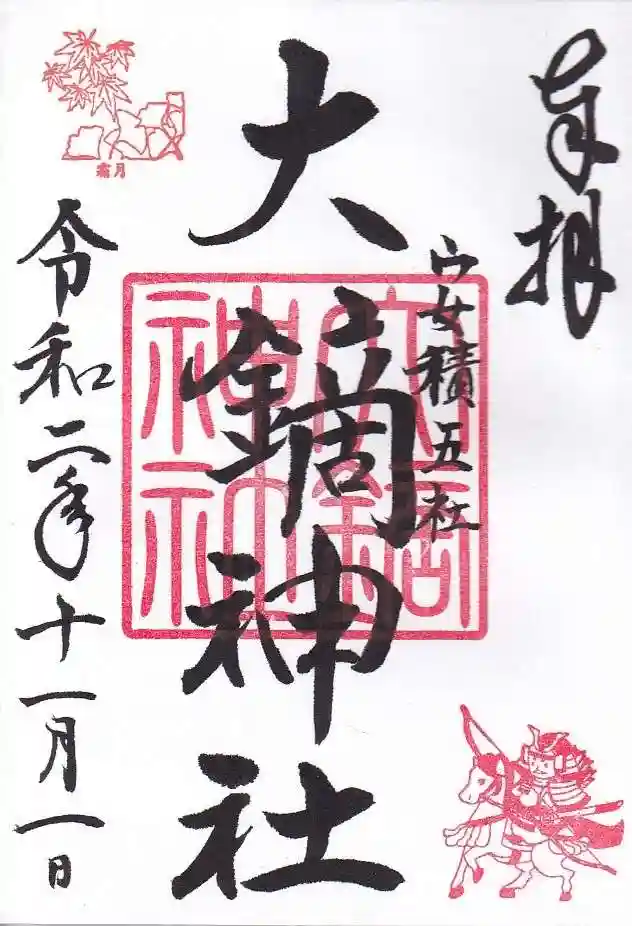 奉拝
安積五社
大鏑神社
大鏑神社
令和二年十一月一日
霜月